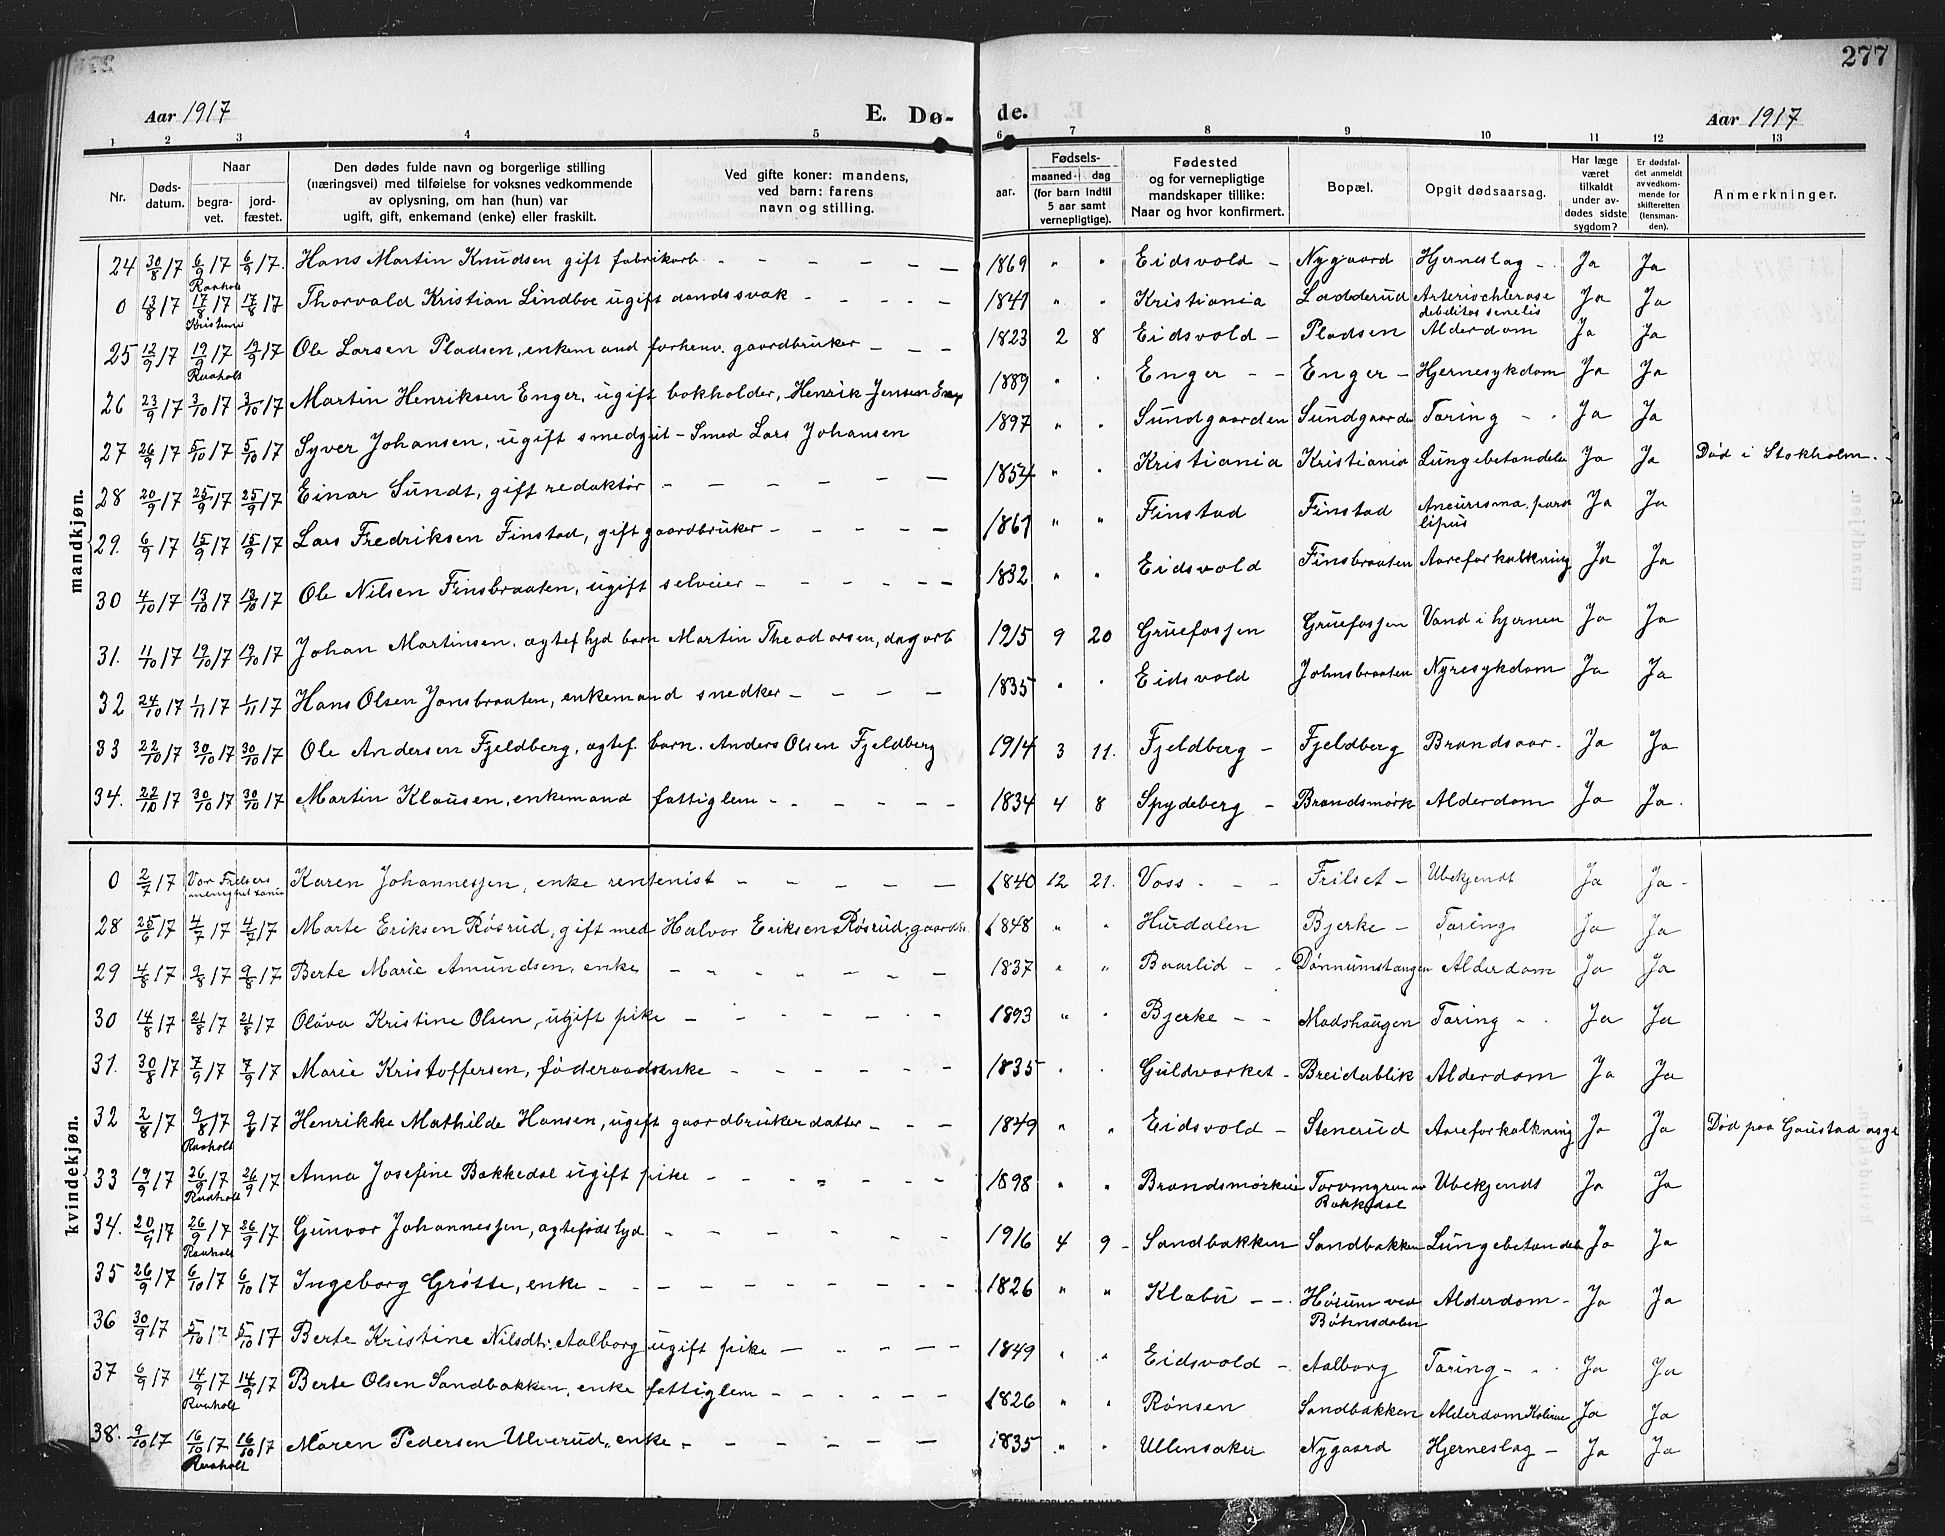 277
Aar 1917 E. Dø- de. Aar 1917
1 2 3 4 5 6 7 8 9 10 11 12 13
Nr. Døds-datum. Naar begra-vet. jord-fæstet. Den dødes fulde navn og borgerlige stilling (næringsvei) med tilføielse for voksnes vedkommende av oplysning, om han (hun) var ugift, gift, enkemand (enke) eller fraskilt. Ved gifte koner: mandens, ved barn: farens navn og stilling. aar. Fødsels- maaned- dag (for barn indtil 5 aar samt vernepligtige). Fødested og for vernepligtige mandskaper tillike: Naar og hvor konfirmert. Bopæl. Opgit dødsaarsag. Har læge været tilkaldt under av-dødes sidste sygdom? Er dødsfal-det anmeldt av vedkom-mende for skifteretten (lensman-den). Anmerkninger.
mandkjøn.
24 30/8 17 6/9 17 Raaholt 6/9 17. Hans Martin Knudsen gift fabrikarb - - - - - - 1869 " " Eidsvold - Nygaard Hjerneslag - Ja Ja
0 13/8 17 17/8 17 17/8 17 Thorvald Kristian Lindboe ugift aandssvak - - - - - 1841 " " Kristiania Ladderud Arterischlerose debilitas senilis Ja Ja
25 12/9 17 19/9 17 Raaholt 19/9 17 Ole Larsen Pladsen, enkemand forhenv. gaardbruker - - - 1823 2 8 Eidsvold - Pladsen Alderdom Ja Ja
26 23/9 17 3/10 17 3/10 17 Martin Henriksen Enger, ugift bokholder, Henrik Jensen Enger 1889 " " Enger - - Enger - Hjernesykdom Ja Ja
27 26/9 17 5/10 17 5/10 17 Syver Johansen, ugift smedgut - Smed Lars Johansen 1897 " " Sundgaarden Sundgaarden Tæring - - Ja Ja
28 20/9 17 25/9 17 25/9 17 Einar Sundt, gift redaktør - - - - - - 1854 " " Kristiania Kristiania Lungebetændelse Ja Ja Død i Stokholm. -
29. 6/9 17 15/9 17 15/9 17 Lars Fredriksen Finstad, gift gaardbruker - - - - - 1861 " " Finstad Finstad Aneurisma, Ja Ja
30 4/10 17 13/10 17 13/10 17 Ole Nilsen Finsbraaten, ugift selveier - - - - - 1832 " " Eidsvold Finsbraaten Aareforkalkning Ja Ja
31. 11/10 17 19/10 17 19/10 17 Johan Martinsen, ægtef hjd barn Martin Theodorsen, dagarb 1915 9 20 Gruefossen Gruefossen Vand i hjernen Ja Ja
32 24/10 17 1/11 17 1/11 17 Hans Olsen Jonsbraaten, enkemand snedker - - - - 1835 " " Eidsvold Johnsbraaten Nyresykdom Ja Ja
33 22/10 17 30/10 17 30/10 17 Ole Andersen Fjeldberg, ægtef. barn. Anders Olsen Fjeldberg 1914 3 11. Fjeldberg - Fjeldberg Brandsaar - Ja Ja
34. 22/10 17 30/10 17 30/10 17 Martin Klausen, enkemand fattiglem - - - - - - 1834 4 8 Spydeberg - Brandsmørk Alderdom Ja Ja.
kvindekjøn.
0 2/7 17 Vor Frelsers Karen Johannessen, enke rentenist - - - - - - 1840 12 21. Voss. - - Frilset - Ubekjendt Ja Ja -
28 25/6 17 4/7 17 4/7 17 Marte Eriksen Røsrud, gift med Halvor Eriksen Røsrud, gaardbr. 1848 " " Hurdalen Bjerke - Tæring Ja Ja
29 4/8 17 9/8 17 9/8 17 Berte Marie Amundsen, enke - - - - - - - 1837 " " Baarlid - - Dønnumstangen Alderdom Ja Ja
30 14/8 17 21/8 17 21/8 17 Olava Kristine Olsen, ugift pike - - - - - - 1893 " " Bjerke - - Madshaugen Tæring - - Ja Ja
31. 30/8 17 7/9 17 7/9 17 Marie Kristoffersen, føderaadsenke - - - - - - 1835 " " Guldvarket - Breidablik Alderdom Ja Ja
32 2/8 17 9/8 17 Raaholt 9/8 17 Henrikke Mathilde Hansen, ugift gaardbrukerdatter - - - 1849 " " Eidsvold - Stenerud Aareforkalkning Ja Ja Død paa Gaustad asyl
33 19/9 17 26/9 17 Raaholt 26/9 17 Anna Josefine Bakkedal ugift pike - - - - - - 1898 " " Bakkedal Ubekjendt Ja Ja
34. 20/9 17 26/9 17 Raaholt 26/9 17 Gunvor Johannessen, ægtefødshjd - - - - - 1916 4 9 - Sandbakken Sandbakken Lungebetændelse Ja Ja
35 26/9 17 6/10 17 6/10 17 Ingeborg Grøtte, enke - - - - - - - - 1826 " " Klæbu - - Høium ved Bøhnsdalen Alderdom - Ja Ja
36 30/9 17 5/10 17 5/10 17 Berte Kristine Nilsdtr. Aalborg ugift pike - - - - - 1849 " " Eidsvold - Aalborg Tæring - - Ja Ja
37 6/9 17 14/9 17 Raaholt 14/9 17 Berte Olsen Sandbakken, enke fattiglem - - - - - - 1826 " " Rønsen Sandbakken Alderdom Ja Ja
38. 9/10 17 16/10 17 Raaholt 16/10 17 Maren Pedersen Ulverud, enke - - - - - - 1835 " " Ullensaker Nygaard Hjerneslag - Ja Ja